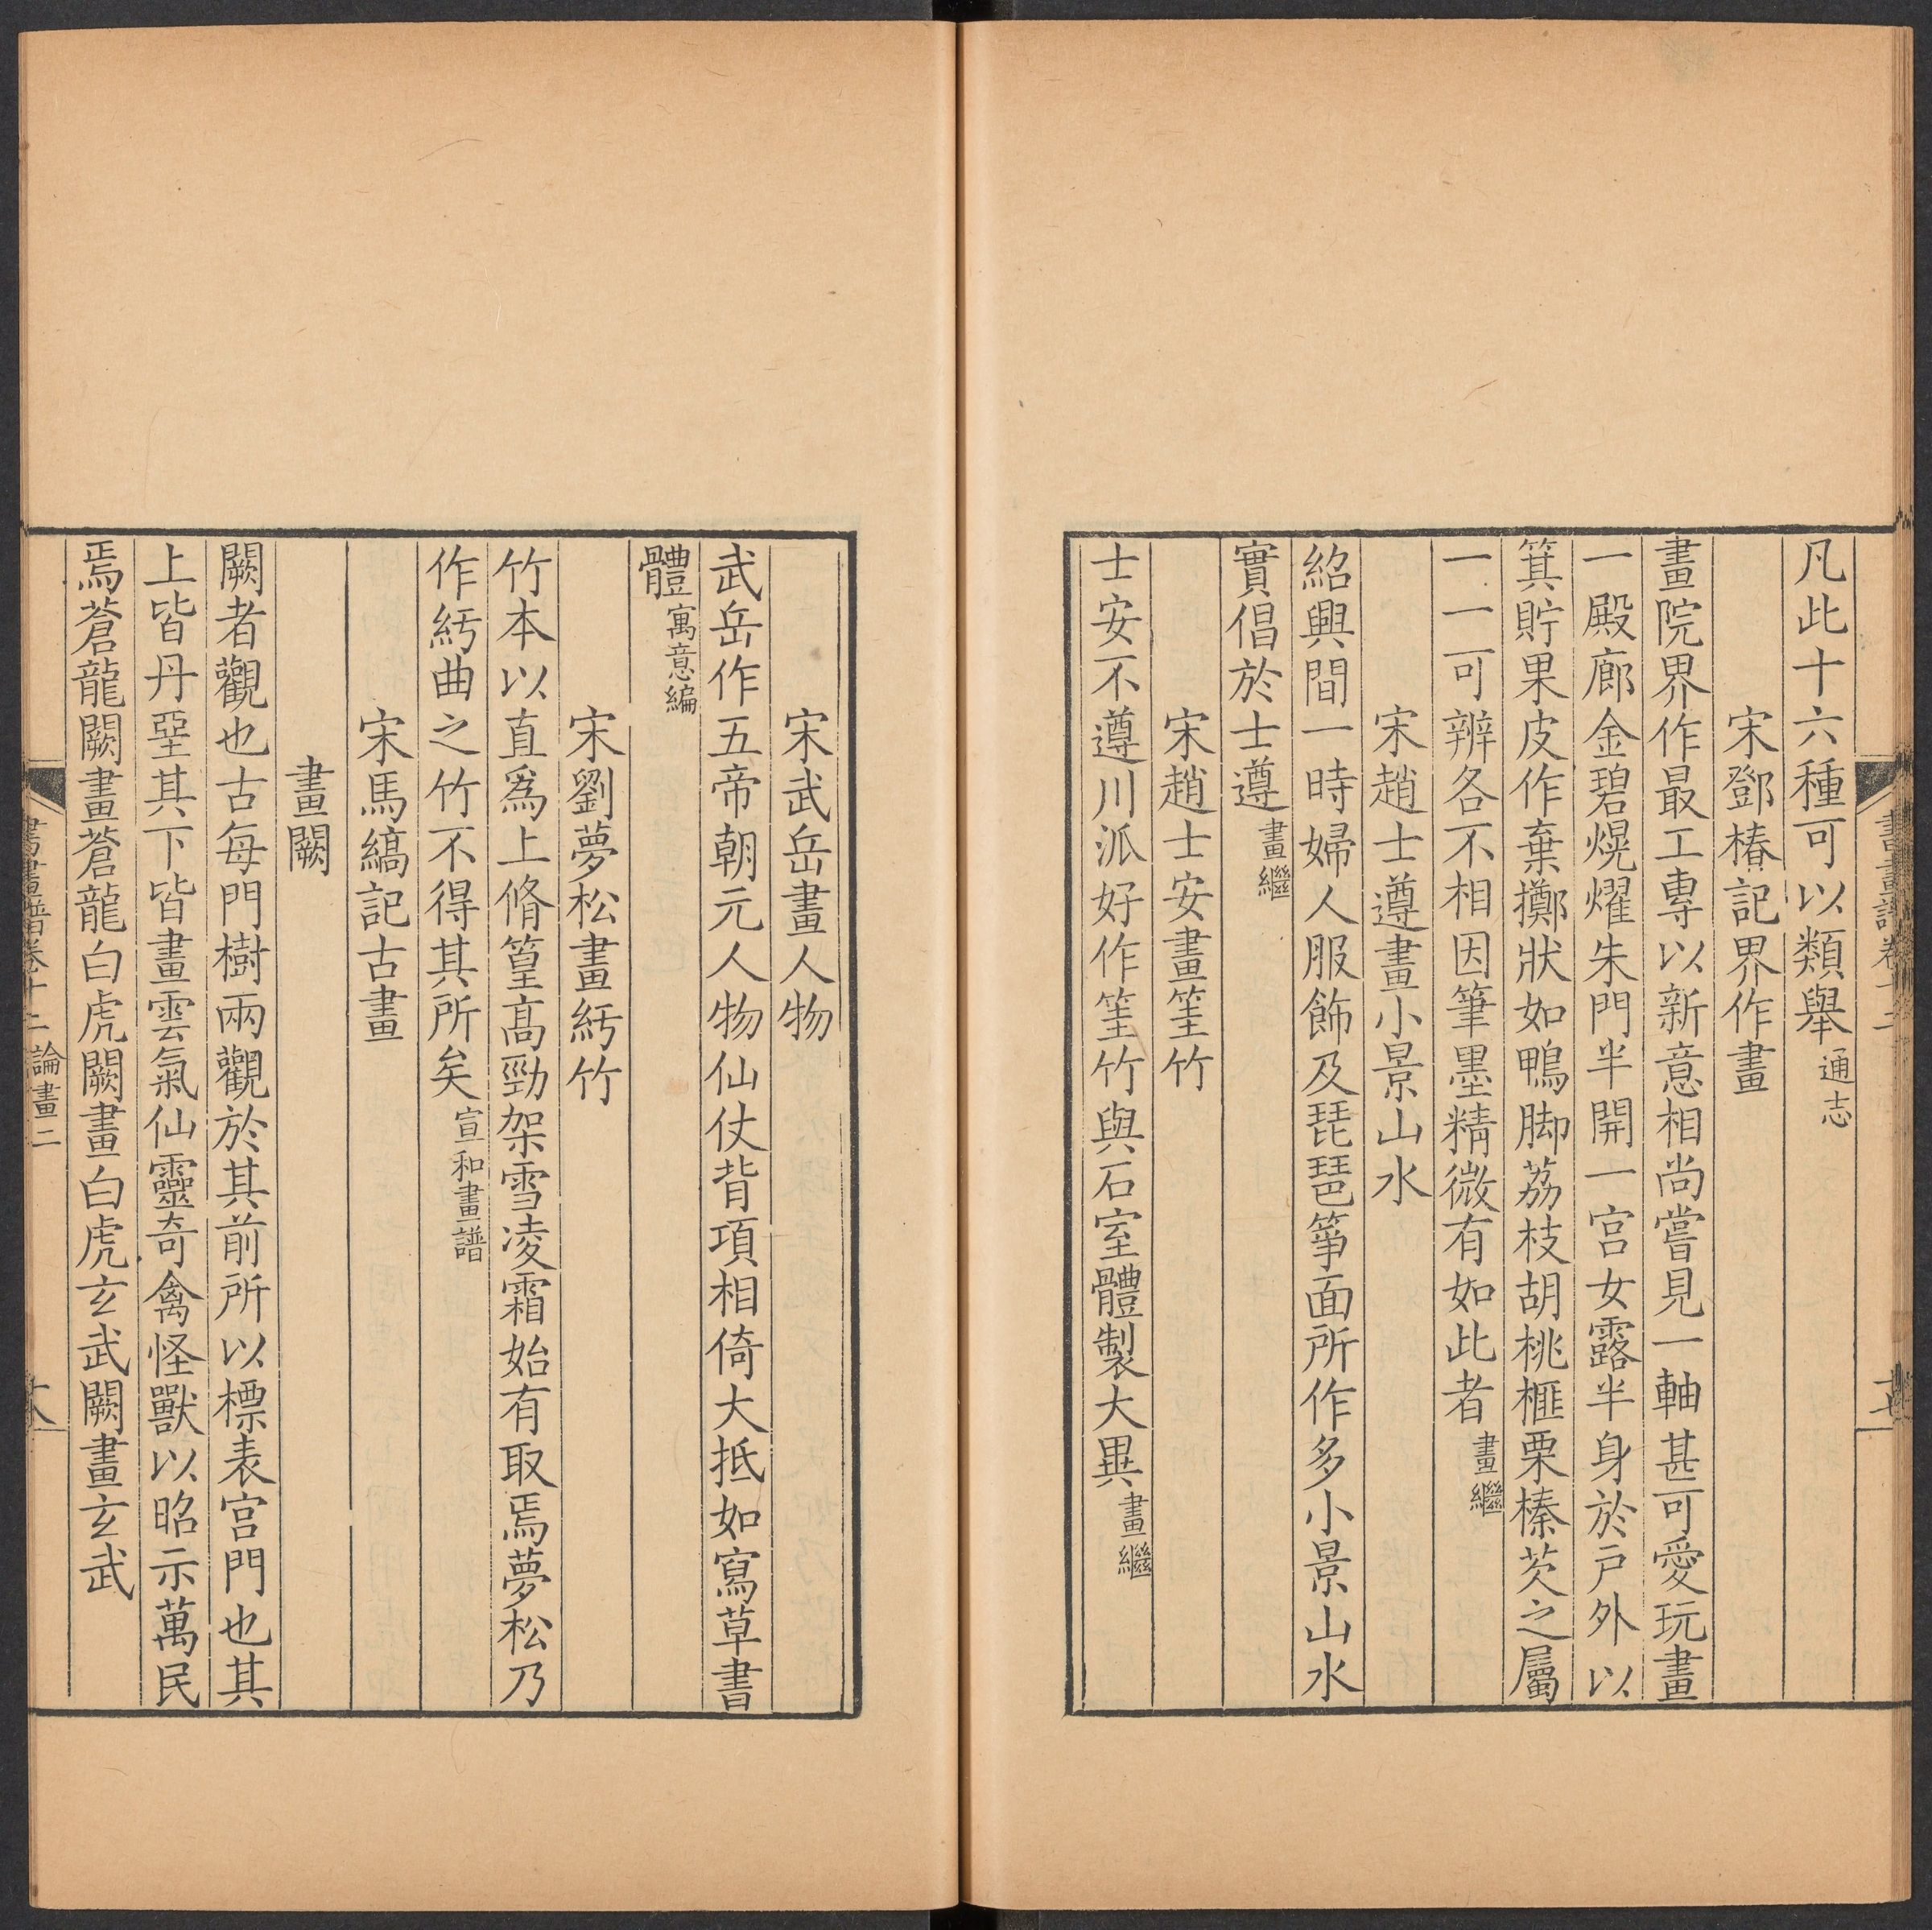 書畫譜卷十二
十七
凡此十六種可以類舉通志
宋鄧椿記界作畫
畫院界作最工專以新意相尚嘗見一軸甚可愛玩畫
一殿廊金碧熀燿朱門半開一宮女露半身於戸外以
箕貯果皮作棄擲狀如鴨脚荔枝胡桃榧栗榛芡之屬
一一可辨各不相因筆墨精微有如此者畫繼
宋趙士遵畫小景山水
紹興間一時婦人服飾及琵琶箏面所作多小景山水
實倡於士遵畫繼
宋趙士安畫筀竹
士安不遵川派好作筀竹與石室體製大異畫繼
宋武岳畫人物
武岳作五帝朝元人物仙仗背項相倚大抵如寫草書
體寓意編
宋劉夢松畫紆竹
竹本以直爲上脩篁高勁架雪凌霜始有取焉夢松乃
作紆曲之竹不得其所矣宣和畫譜
宋馬縞記古畫
畫闕
闕者觀也古每門樹兩觀於其前所以標表宮門也其
上皆丹堊其下皆畫雲氣仙靈奇禽怪獸以昭示萬民
焉蒼龍闕畫蒼龍白虎闕畫白虎玄武闕畫玄武
書畫譜卷十二 論畫二
十八